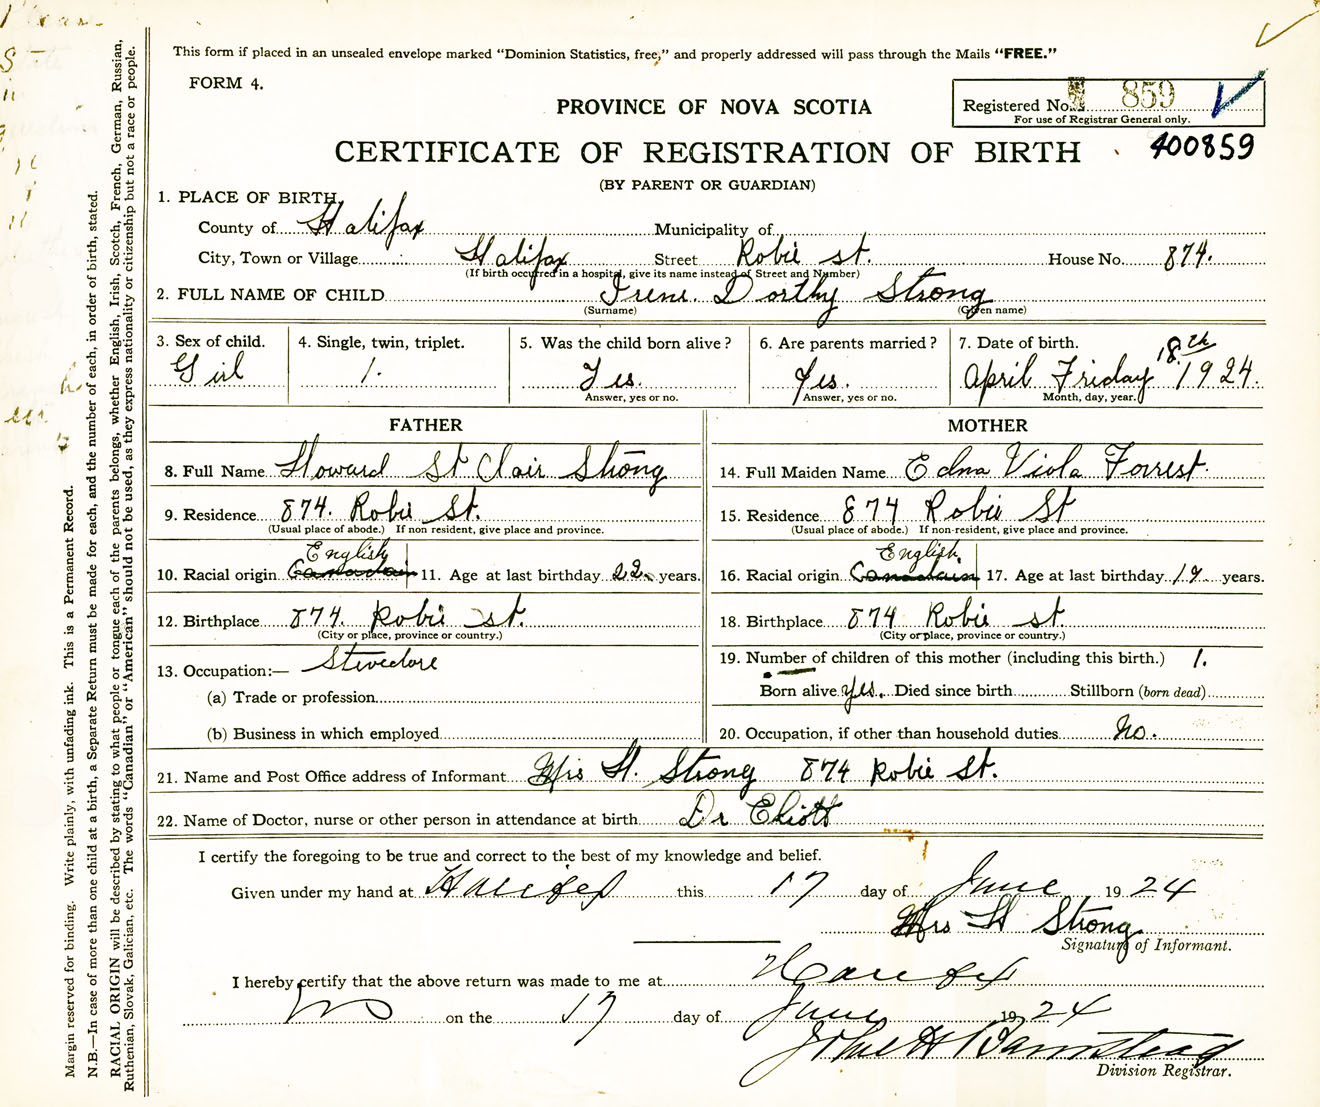 This form if placed in an unsealed envelope marked “Dominion Statistics, free,” and properly addressed will pass through the Mails “FREE.”
FORM 4.
PROVINCE OF NOVA SCOTIA
Registered No. 859
For use of Registrar General only.
CERTIFICATE OF REGISTRATION OF BIRTH 400859
(BY PARENT OR GUARDIAN)
1. PLACE OF BIRTH,
County of Halifax Municipality of
City, Town or Village Halifax Street Robie St. House No. 874.
(If birth occurred in a hospital, give its name instead of Street and Number)
2. FULL NAME OF CHILD Irene Dorthy Strong
(Surname) (Given name)
3. Sex of child. 4. Single, twin, triplet. 5. Was the child born alive? 6. Are parents married? 7. Date of birth.
Girl 1. Yes. Yes. April Friday 18th 1924.
Answer, yes or no. Answer, yes or no. Month, day, year.
FATHER MOTHER
8. Full Name Howard St Clair Strong 14. Full Maiden Name Edna Viola Forrest.
9. Residence 874. Robie St. 15. Residence 874 Robie St
(Usual place of abode.) If non resident, give place and province. (Usual place of abode.) If non-resident, give place and province.
English English
10. Racial origin Canadain 11. Age at last birthday 22 years. 16. Racial origin Canadain 17. Age at last birthday 19 years.
12. Birthplace 874. Robie St. 18. Birthplace 874 Robie St
(City or place, province or country.) (City or place, province or country.)
13. Occupation:— Stevedore 19. Number of children of this mother (including this birth.) 1.
(a) Trade or profession Born alive yes. Died since birth Stillborn (born dead)
(b) Business in which employed 20. Occupation, if other than household duties No.
21. Name and Post Office address of Informant Mrs H. Strong 874 Robie St.
22. Name of Doctor, nurse or other person in attendance at birth Dr Eliott
I certify the foregoing to be true and correct to the best of my knowledge and belief.
Given under my hand at Halifax this 17 day of June 1924
Mrs H Strong
Signature of Informant.
I hereby certify that the above return was made to me at Halifax
on the 17 day of June 1924
Barnstead
Division Registrar.
Margin reserved for binding. Write plainly, with unfading ink. This is a Permanent Record.
N.B.—In case of more than one child at a birth, a Separate Return must be made for each, and the number of each, in order of birth, stated.
RACIAL ORIGIN will be described by stating to what people or tongue each of the parents belongs, whether English, Irish, Scotch, French, German, Russian,
Ruthenian, Slovak, Galician, etc. The words “Canadian” or “American” should not be used, as they express nationality or citizenship but not a race or people.